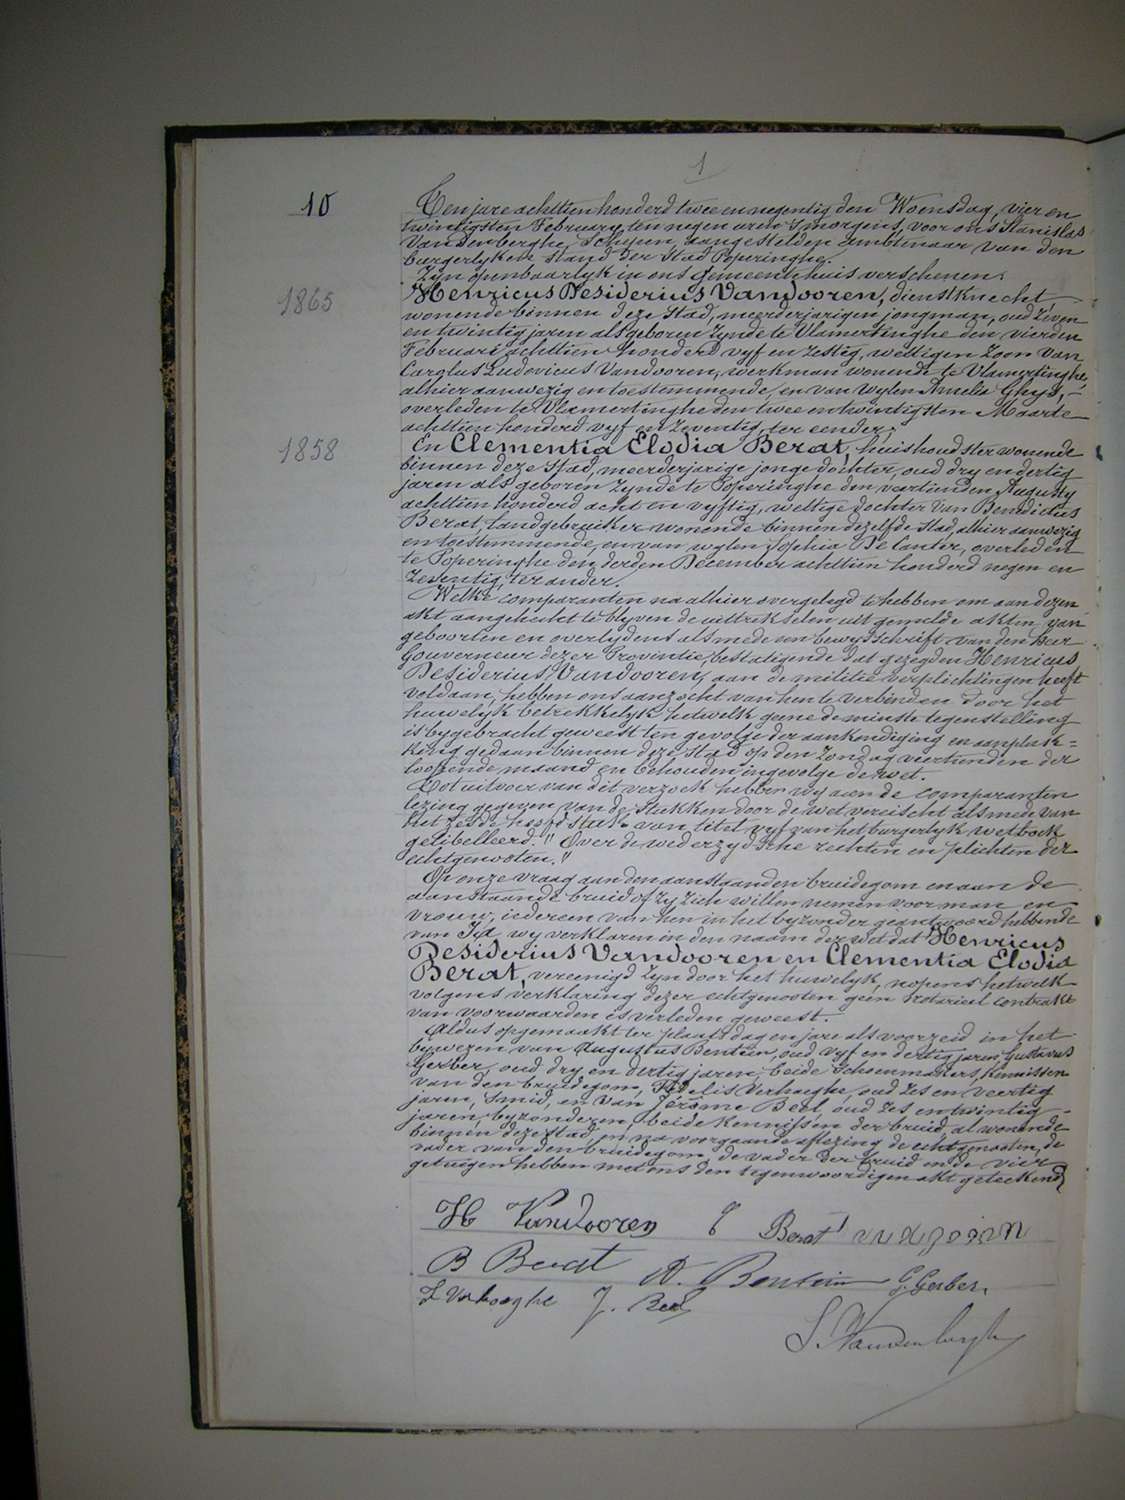 1
10
Ten jare achttien honderd twee en negentig den Woensdag, vier en
twintigsten February ten negen uren 's morgens, voor ons Stanislas
Vandenberghe, Schepen, aangestelden ambtenaar van den
burgerlyken stand der Stad Poperinghe.
Zyn openbaarlyk in ons gemeentehuis verschenen:
1865
Henricus Desiderius Vandooren, dienstknecht,
wonende binnen deze Stad, meerderjarigen jongman, oud zeven
en twintig jaren als geboren zynde te Vlamertinghe den vierden
Februari achttien honderd vyf en zestig, wettigen zoon van
Carolus Ludovicus Vandooren, werkman wonende te Vlamertinghe,
alhier aanwezig en toestemmende, en van wylen Amelia Ghys,
overleden te Vlamertinghe den twee en twintigsten Maarte
achttien honderd vyf en zeventig, ter eender;
1858
En Clementia Elodia Berat, huishoudster wonende
binnen deze Stad, meerderjarige jonge dochter, oud dry en dertig
jaren als geboren zynde te Poperinghe den veertienden Augusty
achttien honderd acht en vyftig, wettige dochter van Benedictus
Berat, Landgebruiker wonende binnen dezelfde Stad, alhier aanwezig
en toestemmende, en van wylen Sophia De Canter, overleden
te Poperinghe den derden December achttien honderd negen en
zeventig, ter ander.
Welke comparanten na alhier overgelegd te hebben om aan dezen
akt aangehecht te blyven de uittrekselen uit gemelde akten van
geboorten en overlydens alsmede een bewysschrift van den Heer
Gouverneur dezer Provintie, bestatigende dat gezegden Henricus
Desiderius Vandooren, aan de militie verplichtingen heeft
voldaan, hebben ons aanzocht van hen te verbinden door het
huwelyk betrekkelyk hetwelk geene de minste tegenstelling
is bygebracht geweest ten gevolge der aankondiging en aanplak=
king gedaan binnen deze Stad op den Zondag veertienden der
loopende maand en behouden ingevolge de wet.
Tot uitvoer van dit verzoek hebben wy aan de comparanten
lezing gegeven van de Stukken door de wet vereischt alsmede van
het zesde hoofdstuk van titel vyf van het burgerlyk wetboek
gelibelleerd: "Over de wederzydsche rechten en plichten der
echtgenooten."
Op onze vraag aan den aanstaanden bruidegom en aan de
aanstaande bruid of zy zich willen nemen voor man en
vrouw, iedereen van hen in het byzonder geantwoord hebbende
van Ja, wy verklaren in den naam der wet dat Henricus
Desiderius Vandooren en Clementia Elodia
Berat, vereenigd zyn door het huwelyk, nopens hetwelk
volgens verklaring dezer echtgenooten geen Notarieel contrakt
van voorwaarden is verleden geweest.
Aldus opgemaakt ter plaats dag en jare als voorzeid in het
bywezen van Augustus Bentein, oud vyf en dertig jaren, Gustavus
Gerber, oud dry en dertig jaren, beide Schoenmakers, kennissen
van den bruidegom, Fidelis Verhaeghe, oud zes en veertig
jaren, Smid, en van Jérôme Beel, oud zes en twintig
jaren, byzonderen, beide kennissen der bruid, al wonende
binnen deze stad en na voorgaande aflezing de echtgenooten, de
vader van den bruidegom, de vader der bruid en de vier
getuigen hebben met ons den tegenwoordigen akt geteekend
H Vandooren E Berat
B Berat A. Bentein G. Gerber.
F Verhaeghe J. Beel
S. Vandenberghe